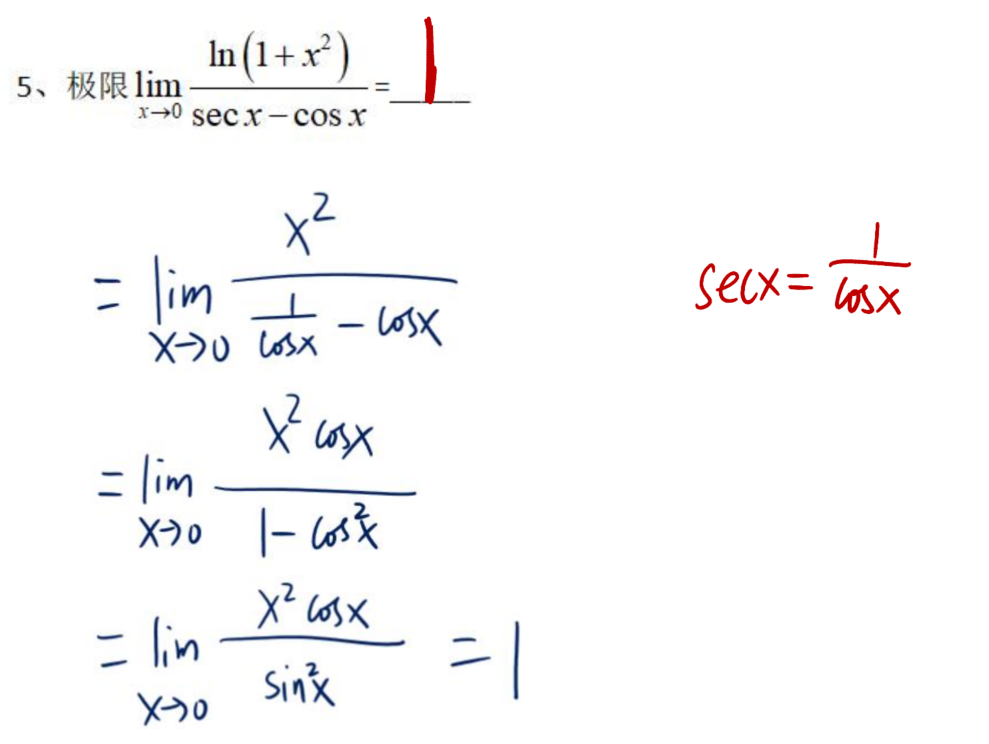 5、极限 lim x→0 ln(1+x²) / (sec x − cos x) = 1
= lim x→0 x² / (1/cosx − cosx)
secx = 1/cosx
= lim x→0 x² cosx / (1 − cos²x)
= lim x→0 x² cosx / sin²x = 1